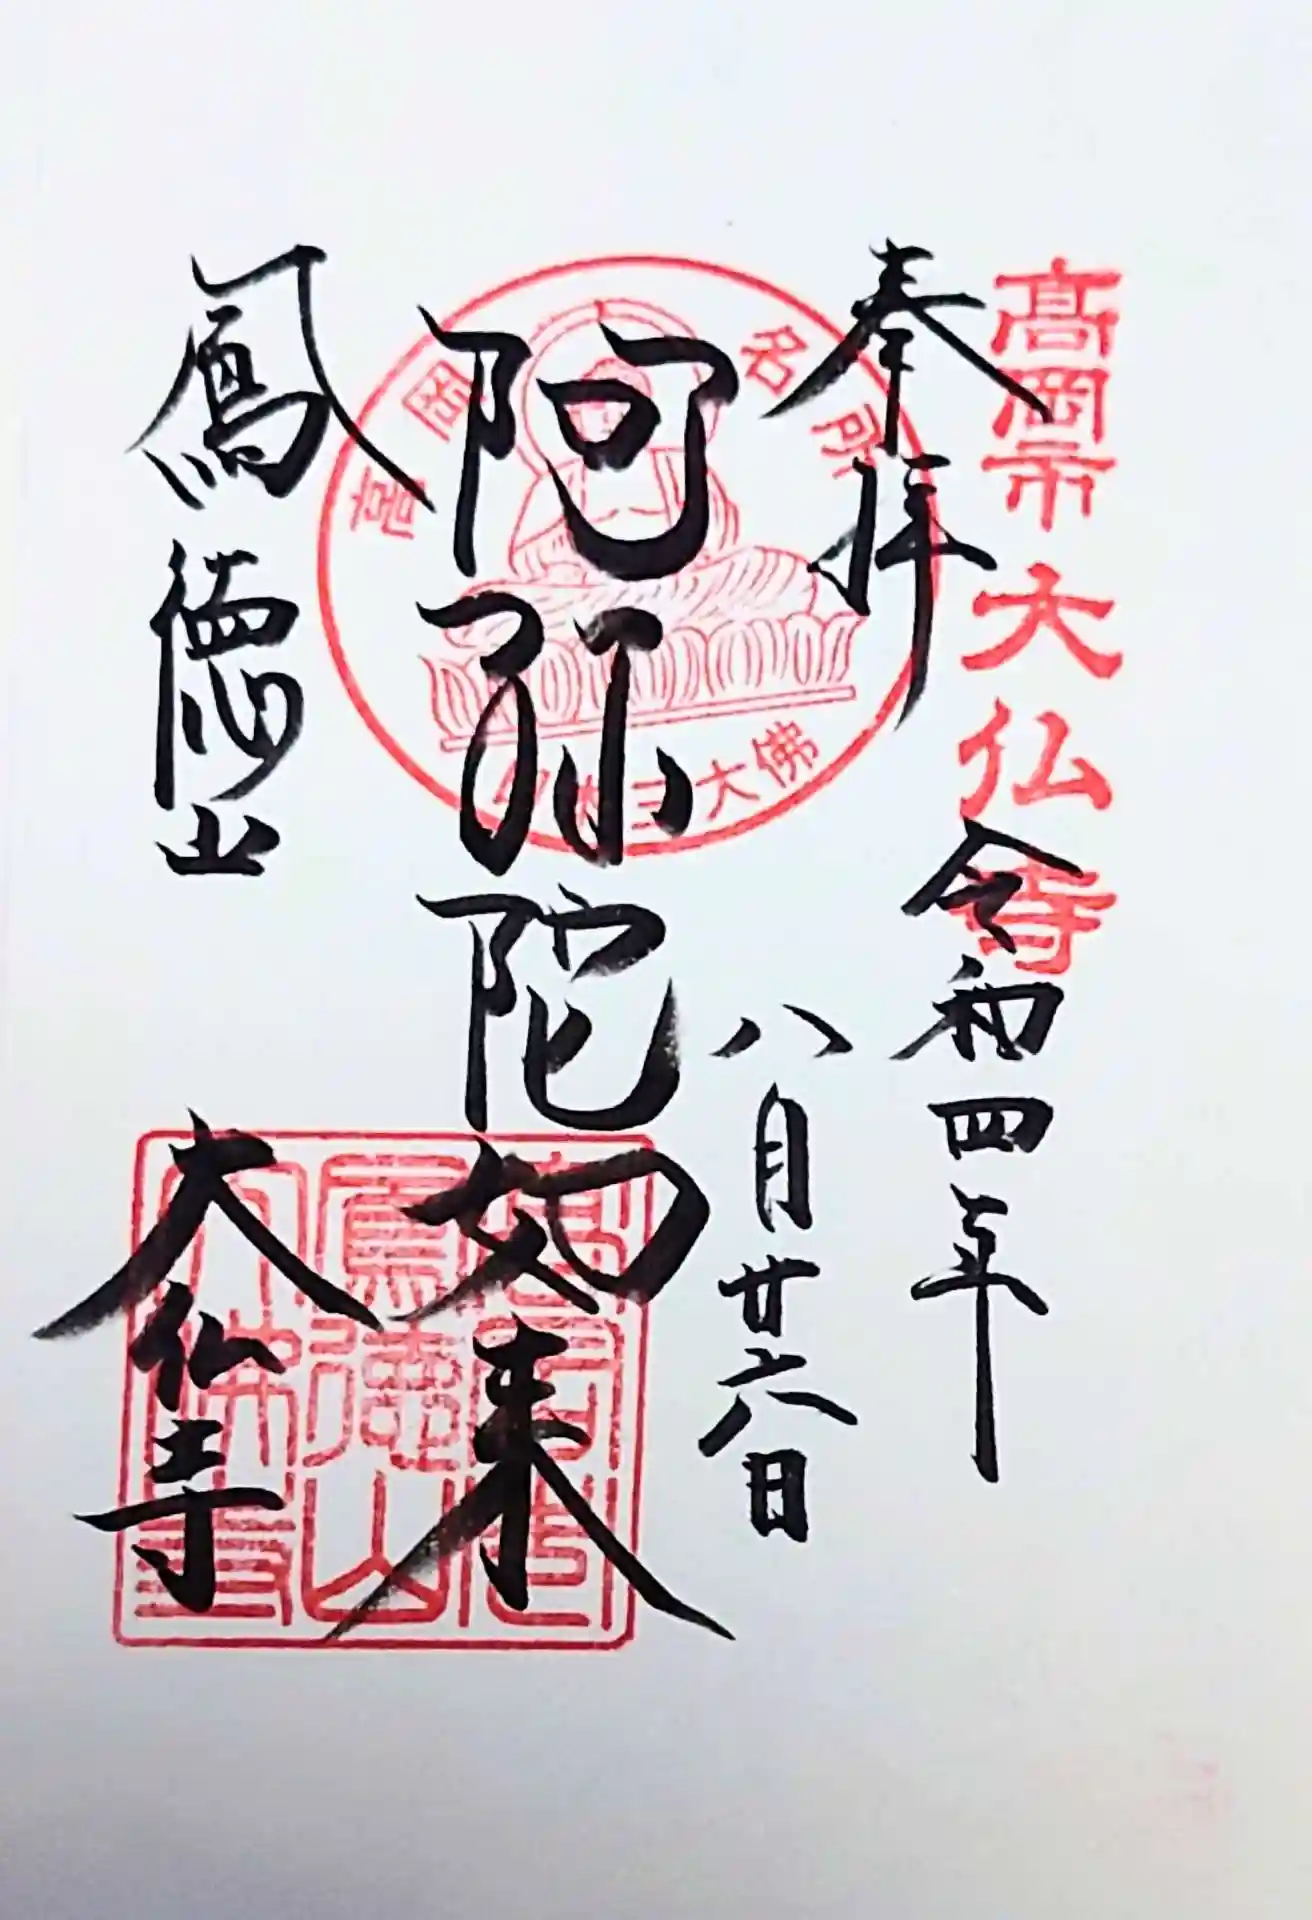 高岡市大仏寺
奉拝
令和四年
八月廿六日
高岡名所
日本三大佛
阿弥陀如来
鳳徳山
大仏寺
鳳徳山
大佛寺